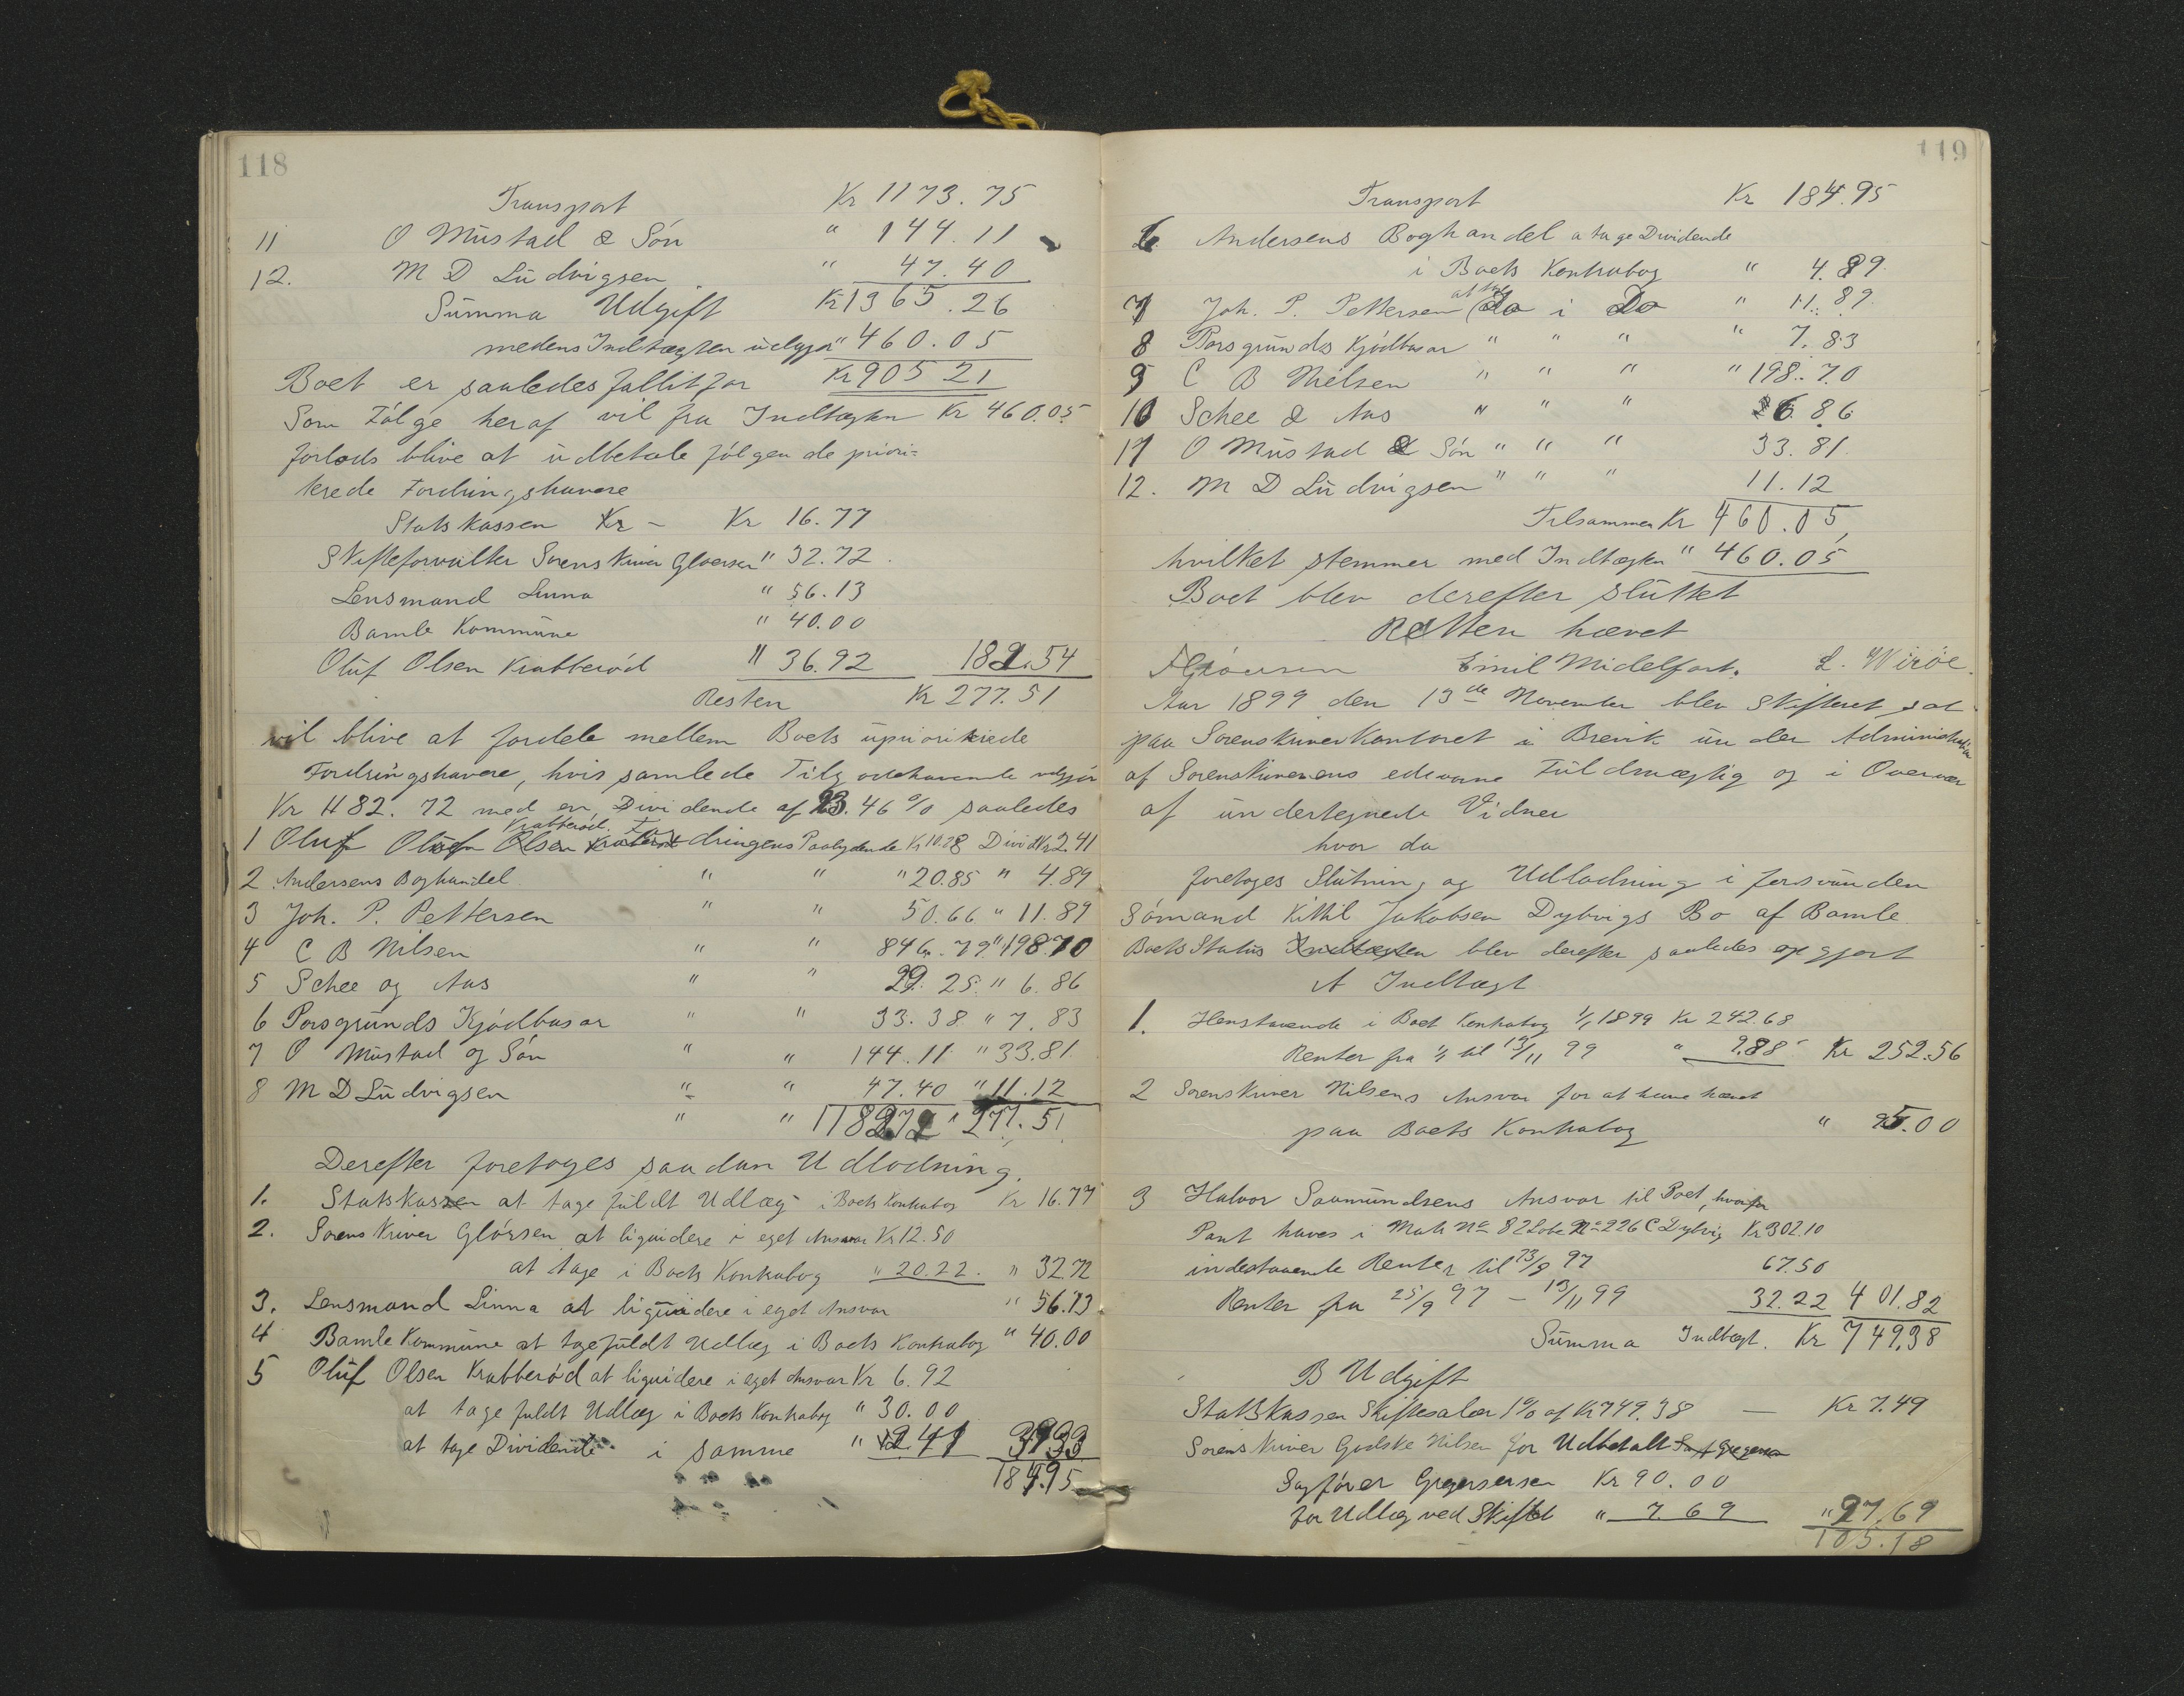 118
Transport Kr 1173.75
11 O Mustad & Søn " 144.11
12. M D Ludvigsen " 47.40
Summa Udgift Kr 1365.26
medens Indtægten udgjør " 460.05
Boet er saaledes fallit for Kr 905 21
Som Følge heraf vil fra Indtægten Kr 460.05
forlods blive at udbetale følgende priori-
terede Fordringshavere
Statskassen Kr - Kr 16.77
Skifteforvalter Sorenskriver Gløersen " 32.72
Lensmand Linna " 56.13
Bamle Kommune " 40.00
Oluf Olsen Krabberød " 36.92 182.54
Resten Kr 277.51
vil blive at fordele mellem Boets upriorterede
Fordringshavere, hvis samlede Tilgodehavende udgjør
Kr 1182.72 med en Dividende af 23.46 % saaledes
1 Oluf Olsen Krabberød. Fordringens Paalydende Kr 10.28 Divid Kr 2.41
2 Andersens Boghandel " " " 20.85 " 4.89
3 Joh. P. Pettersen " " 50.66 " 11.89
4 C B Nilsen " " 846.79 " 198.70
5 Schee og Aas " " 29.25. " 6.86
6 Porsgrunds Kjødbasar " " 33.38 " 7.83
7 O Mustad og Søn " " 144.11 " 33.81
8 M D Ludvigsen " " 47.40 " 11.12
" " 1182.72 " 277.51
Derefter foretoges saadan Udlodning.
1. Statskassen at tage fuldt Udlæg i Boets Kontrabog Kr 16.77
2. Sorenskriver Gløersen at liquidere i eget Ansvar Kr 12.50
at tage i Boets Kontrabog " 20.22. " 32.72
3. Lensmand Linna at liquidere i eget Ansvar " 56.13
4 Bamle Kommune at tage fuldt Udlæg i Boets Kontrabog " 40.00
5 Oluf Olsen Krabberød at liquidere i eget Ansvar Kr 6.92
at tage fuldt Udlæg i Boets Kontrabog " 30.00
at tage Dividende i samme " 2.41 39.33
184.95
119
Transport Kr 184.95
6 Andersens Boghandel a tage Dividende
i Boets Kontrabog " 4.89
7 Joh. P. Pettersen at tage Do i Do " 11.89
8 Porsgrunds Kjødbasar " " " " 7.83
9 C B Nielsen " " " " 198.70
10 Schee & Aas " " " 6.86
11 O Mustad & Søn " " " 33.81
12. M D Ludvigsen " " " 11.12
Tilsammen Kr 460.05,
hvilket stemmer med Indtægten " 460.05
Boet blev derefter sluttet
Retten hævet
Gløersen Emil Midelfart. L. Wirøe.
Aar 1899 den 13de November blev Skifteret sat
paa Sorenskriverkontoret i Brevik under Administration
af Sorenskriverens edsvorne Fuldmægtig og i Overvær
af undertegnede Vidner
hvor da
foretoges Slutning og Udlodning i forsvunden
Sømand Kittil Jakobsen Dybvigs Bo af Bamle
Boets Status Indtægten blev derefter saaledes opgjort
A Indtægt
1. Henstaaende i Boet Kontrabog 1/1 1899 Kr 242.68
Renter fra 1/1 til 13/11 99 " 9.88 Kr 252.56
2 Sorenskriver Nilsens Ansvar for at have hævet
paa Boets Kontrabog " 95.00
3 Halvor Saamundsens Ansvar til Boet, hvorfor
Pant haves i Matr No 82 Løbe No 226 C Dybvig Kr 302.10
indestaaende Renter til 23/9 97 67.50
Renter fra 25/9 97 - 13/11 99 32.22 401.82
Summa Indtægt. Kr 749.38
B Udgift
Statskassen Skiftesalær 1% af Kr 749.38 — Kr 7.49
Sorenskriver Godske Nilsen for Udbetalt
Sagfører Gregersersen Kr 90.00
for Udlæg ved Skiftet " 7.69 " 97.69
105.18